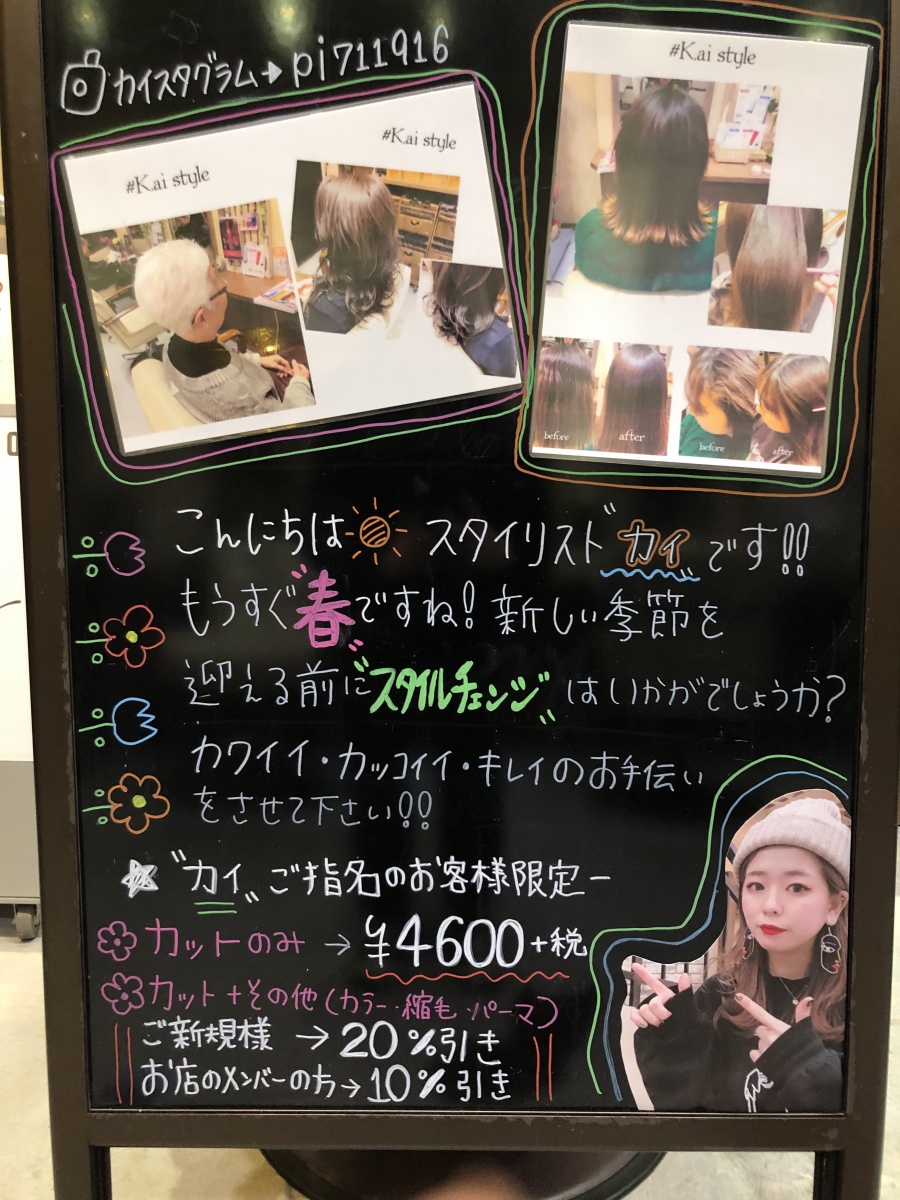 カイスタグラム→pi711916
#Kai style
#Kai style
#Kai style
before
after
before
after
こんにちは スタイリスト"カイ"です!!
もうすぐ"春"ですね! 新しい季節を
迎える前に"スタイルチェンジ"はいかがでしょうか?
カワイイ・カッコイイ・キレイのお手伝い
をさせて下さい!!
☆"カイ"ご指名のお客様限定ー
カットのみ→¥4600+税
カット+その他(カラー・縮毛・パーマ)
ご新規様→20%引き
お店のメンバーの方→10%引き